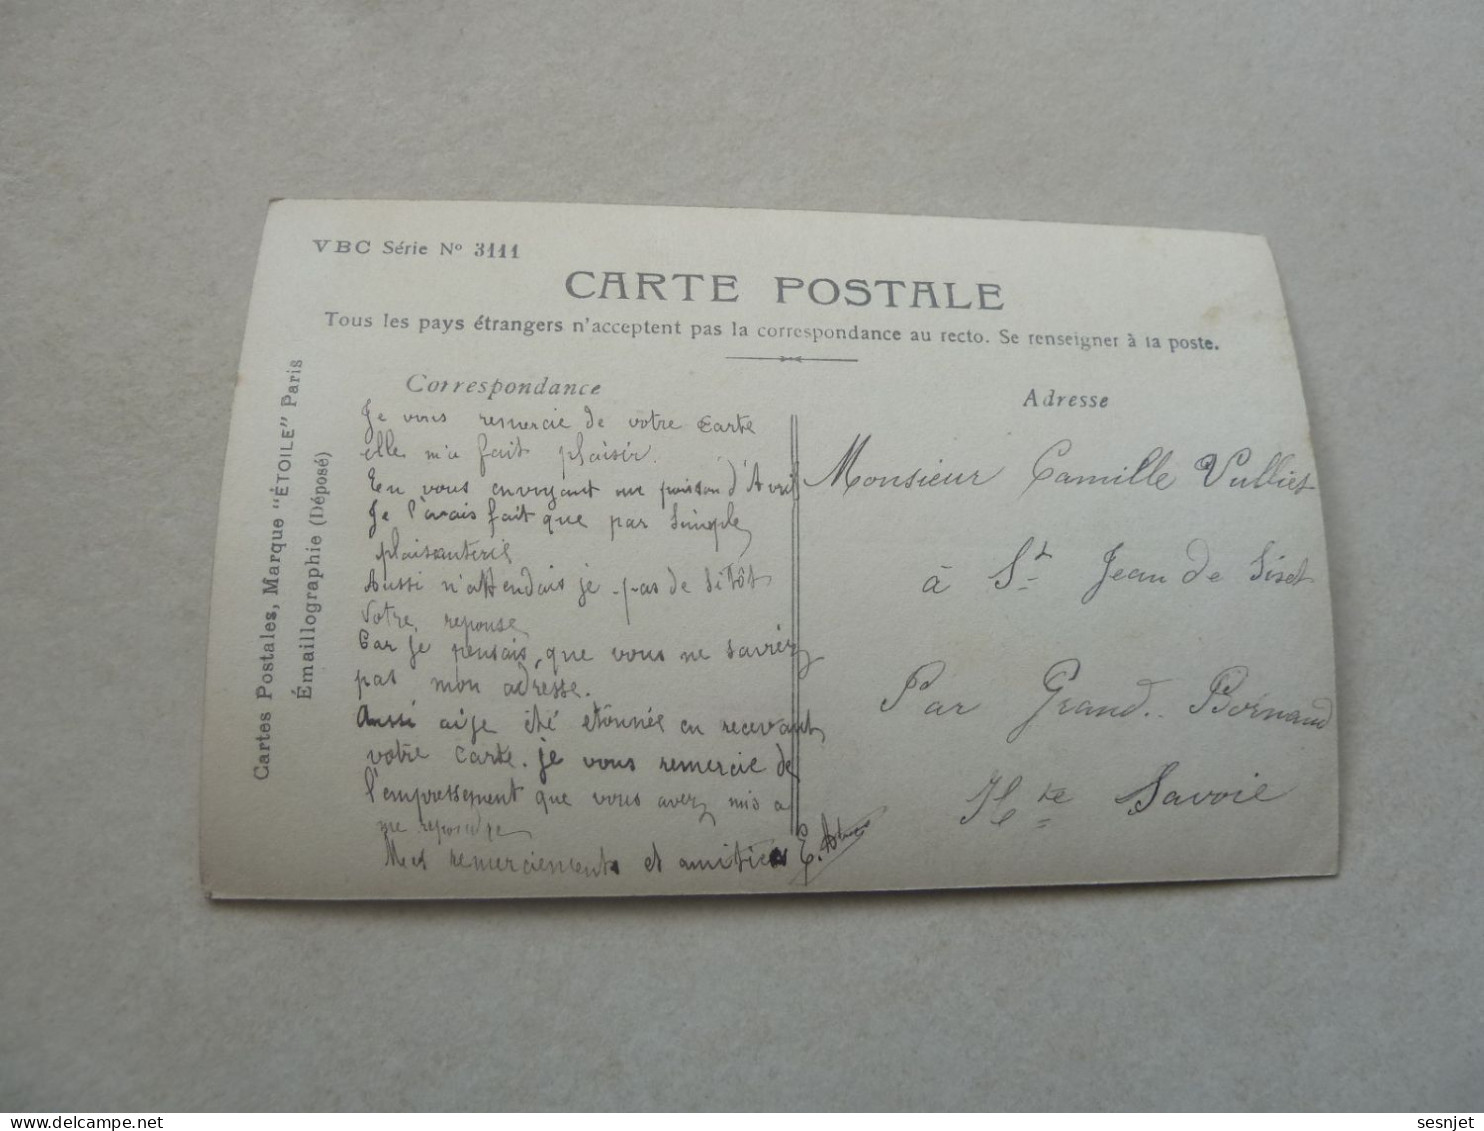 VBC Série Nº 3111
CARTE POSTALE
Tous les pays étrangers n'acceptent pas la correspondance au recto. Se renseigner à la poste.
Cartes Postales, Marque "ÉTOILE" Paris
Émaillographie (Déposé)
Correspondance
Je vous remercie de votre carte
elle m'a fait plaisir.
En vous envoyant un poisson d'Avril
Je l'avais fait que par simple
plaisanterie
Aussi n'attendais je pas de sitôt
votre reponse
Car je pensais, que vous ne saviez
pas mon adresse.
Aussi aije été etonnée en recevant
votre carte. je vous remercie de
l'empressement que vous avez mis a
me repondre
Mes remerciements et amitiés E.
Adresse
Monsieur Camille Vulliet
à St Jean de Sixt
Par Grand. Bornand
Hte Savoie
sesnjet